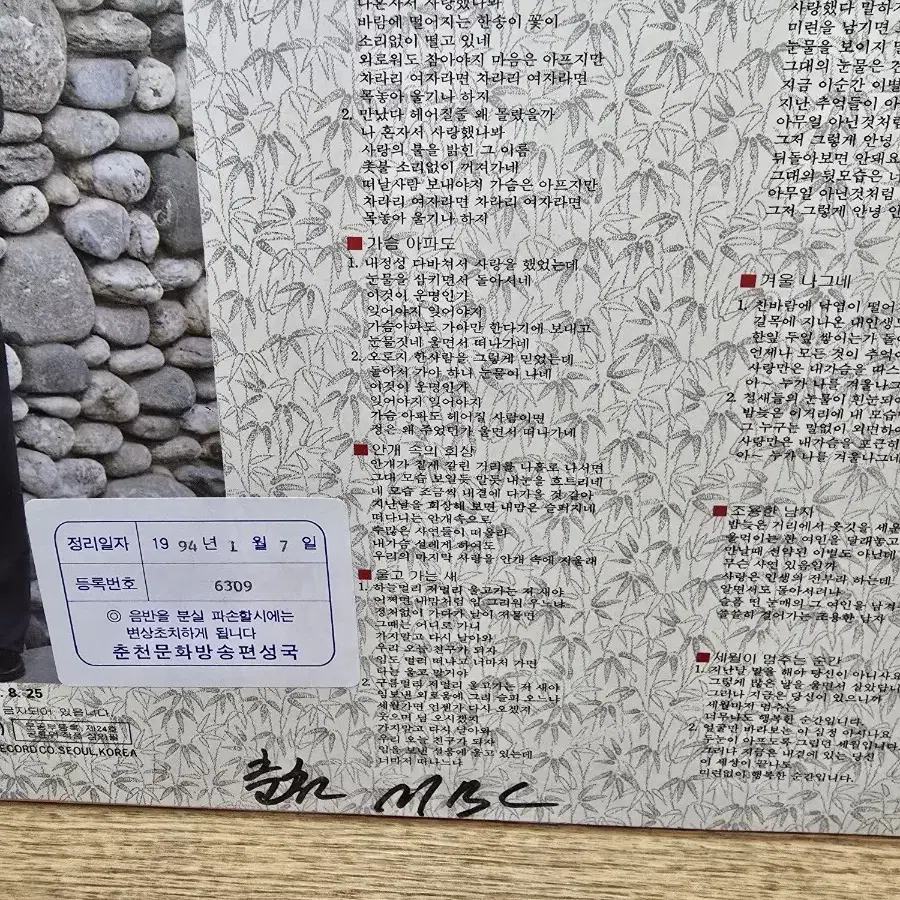 나혼자서 사랑했나봐
바람에 떨어지는 한송이 꽃이
소리없이 떨고 있네
외로워도 참아야지 마음은 아프지만
차라리 여자라면 차라리 여자라면
목놓아 울기나 하지
2. 만났다 헤어질줄 왜 몰랐을까
나 혼자서 사랑했나봐
사랑의 불을 밝힌 그 이름
촛불 소리없이 꺼져가네
떠날사람 보내야지 가슴은 아프지만
차라리 여자라면 차라리 여자라면
목놓아 울기나 하지
가슴 아파도
1. 내정성 다바쳐서 사랑을 했었는데
눈물을 삼키면서 돌아서네
이것이 운명인가
잊어야지 잊어야지
가슴아파도 가야만 한다기에 보내고
눈물짓네 울면서 떠나가네
2. 오로지 한사람을 그렇게 믿었는데
돌아서 가야 하나 눈물이 나네
이것이 운명인가
잊어야지 잊어야지
가슴 아파도 헤어질 사람이면
정은 왜 주었던가 울면서 떠나가네
안개 속의 회상
안개가 짙게 깔린 거리를 나홀로 나서면
그대 모습 보일듯 말듯 내눈을 흐트리네
네 모습 조금씩 내곁에 다가올 것 같아
지난날을 회상해 보면 내맘은 슬퍼지네
떠다니는 안개속으로
수많은 사연들이 떠올라
내가슴 설레게 하여도
우리의 마지막 사랑을 안개 속에 지울래
울고 가는 새
1. 하늘멀리 저멀리 울고가는 저 새야
어쩌면 내맘처럼 임 그리워 우느냐
정처없이 가다가 날이 저물면
그때는 어디로 가니
가지말고 다시 날아와
우리 오늘 친구가 되자
임도 멀리 떠나고 너마저 가면
나는 울고 말거야
2. 구름멀리 저멀리 울고가는 저 새야
임보낸 외로움에 그리 슬피 우느냐
세월가면 언젠가 다시 오겠지
웃으며 널 오시겠지
가지말고 다시 날아와
우리 오늘 친구가 되자
임을 보낸 설움에 울고 있는데
너마저 떠나느냐
사랑했다 말하지
미련을 남기면
눈물을 보이지
그대의 눈물은
지금 이순간 이별
지난 추억들이
아무일 아닌것처럼
그저 그렇게 안녕
뒤돌아보면 안돼요
그대의 뒷모습은
아무일 아닌것처럼
그저 그렇게 안녕
겨울 나그네
1. 찬바람에 낙엽이 떨어
길목에 지나온 내인생
한잎 두잎 쌓이는가
언제나 모든 것이 추억
사랑만은 내가슴을
아~ 누가 나를 겨울나그
2. 철새들의 눈물이 흰눈되어
밤늦은 이거리에 내 모습
그 누구는 말없이 외면하
사랑만은 내가슴을 포근히
아~ 누가 나를 겨울나그네
조용한 남자
밤늦은 거리에서 옷깃을 세운
울먹이는 한 여인을 달래놓고
만날때 선약된 이별도 아닌데
무슨 사연 있었을까
사랑은 인생의 전부라 하는데
알면서도 돌아서려나
슬픔 띤 눈매의 그 여인을 남겨
쓸쓸히 걸어가는 조용한 남자
세월이 멈추는 순간
1. 지난날 말을 해야 당신이 아니사요
그렇게 많은 날을 울면서 실었답니
그러나 지금은 당신이 있으니까
세월마저 멈추는
너무나도 행복한 순간입니다.
2. 얼굴만 바라보는 이 심정 아시나요
두눈이 아프도록 그립던 세월입니다
그러나 지금은 내곁에 있는 당신
이 세상이 끝나도
미련없이 행복한 순간입니다.
정리일자 1994년 1월 7일
등록번호 6309
◎ 음반을 분실 파손할시에는
변상조치하게 됩니다
춘천문화방송편성국
. 8. 25
금지되어 있읍니다.
제24호
RECORD CO. SEOUL, KOREA
춘천 MBC